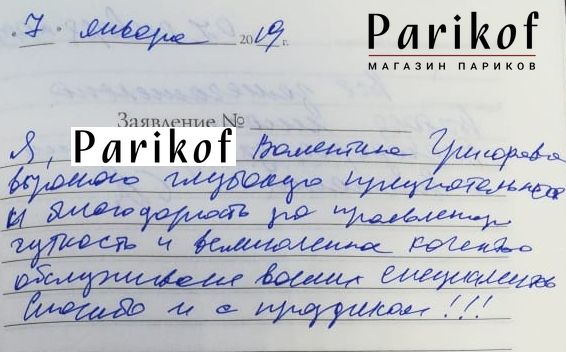 7 января 2019 г.
Parikof
МАГАЗИН ПАРИКОВ
Заявление №
Я, Parikof Валентина Григорьевна
выражаю глубокую признательность
и благодарность за проявленную
чуткость и великолепное качество
обслуживание ваших специалистов
Спасибо и с праздником!!!